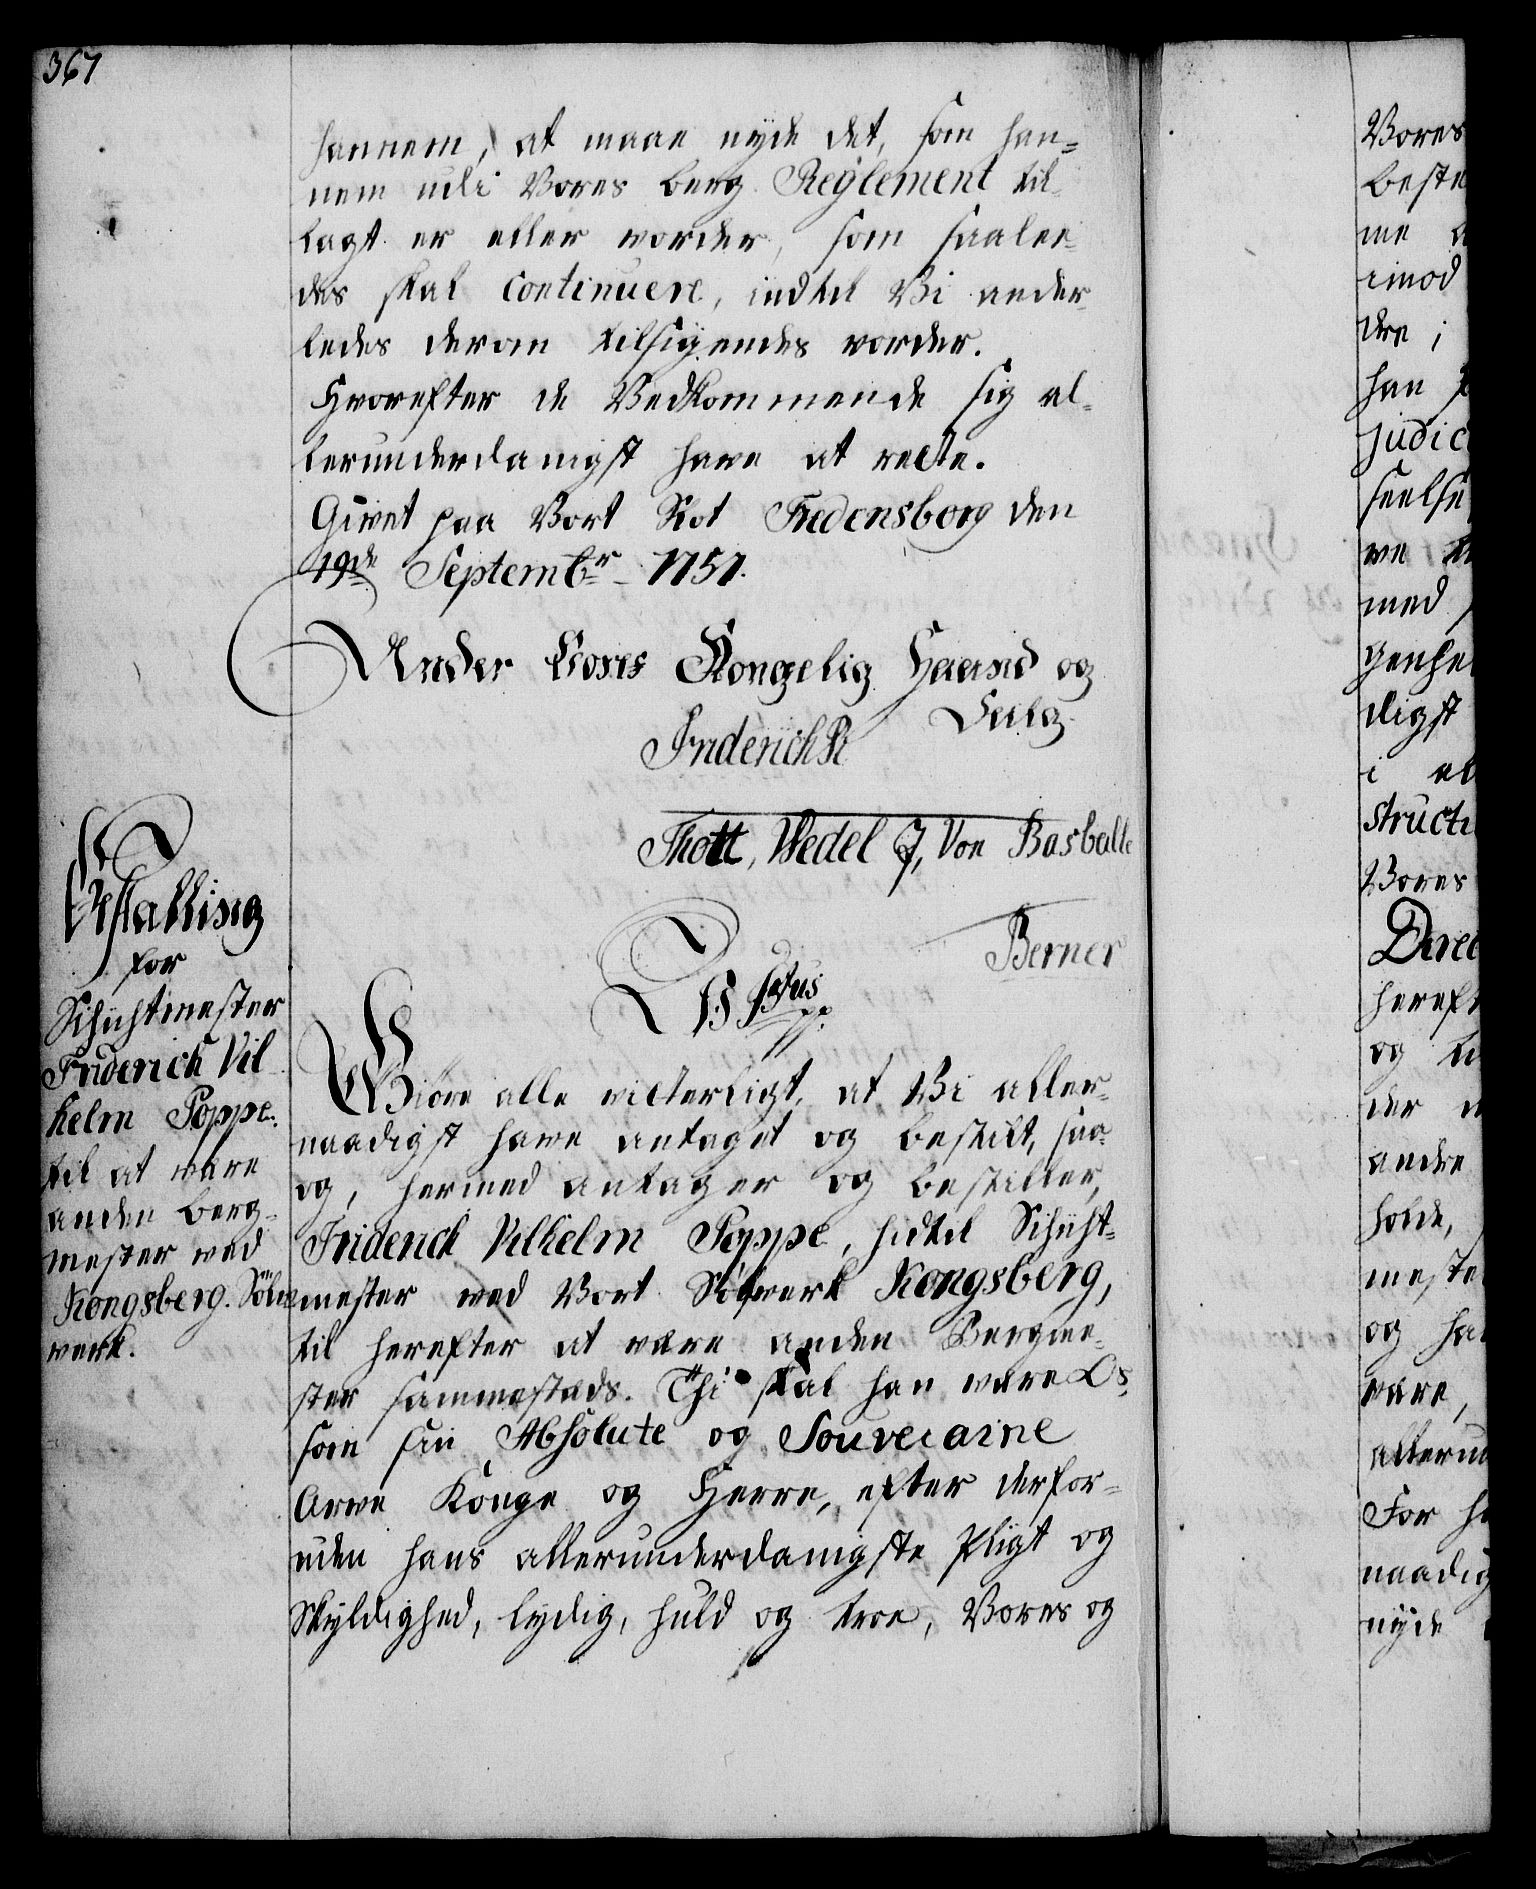 367
hannem, at maae nyde det, som han-
nem udi Vores berg Reglement til-
lagt er eller vorder, som saalee-
des skal continuere, indtil Vi ander-
ledes derom tilsigendes vorder.
Hvorefter de Vedkommende sig al-
lerunderdanigst have at rette.
Givet paa Vort Slot Fredensborg den
19de Septembr. 1751.
Under Vores Kongelig Haand og
Seilg.
Friderich R
Thott, Wedel J, Von Basballe
Berner
Bestalling
for
Schichtmester
Friderich Vil
helm Poppe.
til at være
anden berg-
mester ved
Kongsberg. Sölv
werk.
Giöre alle vitterligt, at Vi aller-
naadigst have antaget og bestilt, saa
og, hermed antager og bestiller,
Friderich Vilhelm Poppe, hidtil Schicht-
mester ved Vort Sölverk Kongsberg,
til herefter at være anden Bergme-
ster sammesteds. Thi skal han være Os,
som sin Absolute og Souveraine
Arve Konge og Herre, efter derfor-
uden hans allerunderdanigste Pligt og
Skyldighed, lydig, huld og troe, Vores og
Vores
beste
me
imod
dre i
han
judic
seelse
ve
med
genhe
digst
i al
structi
Vores
Direc
heref
og
der
andre
holde,
meste
og ha
være,
alleru
For h
naadig
nyde